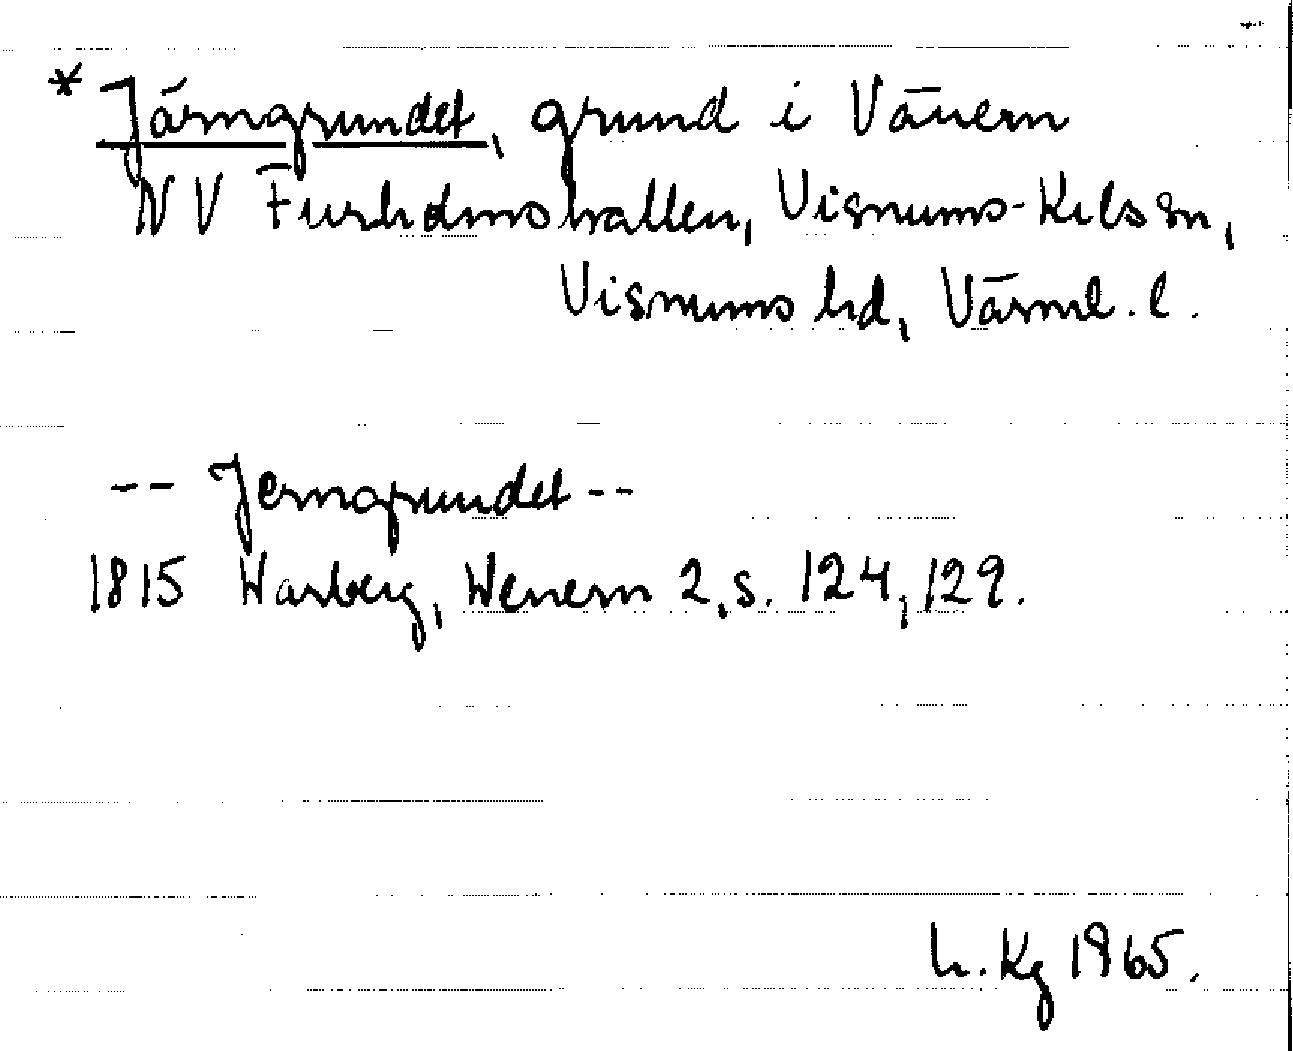 * Järngrundet, grund i Vänern
NV Furholmshallen, Visnums-Kils sn,
Visnums hd, Värml. l.
-- Jerngrundet --
1815 Warberg, Wenern 2, s. 124, 129.
h. Kg 1965.